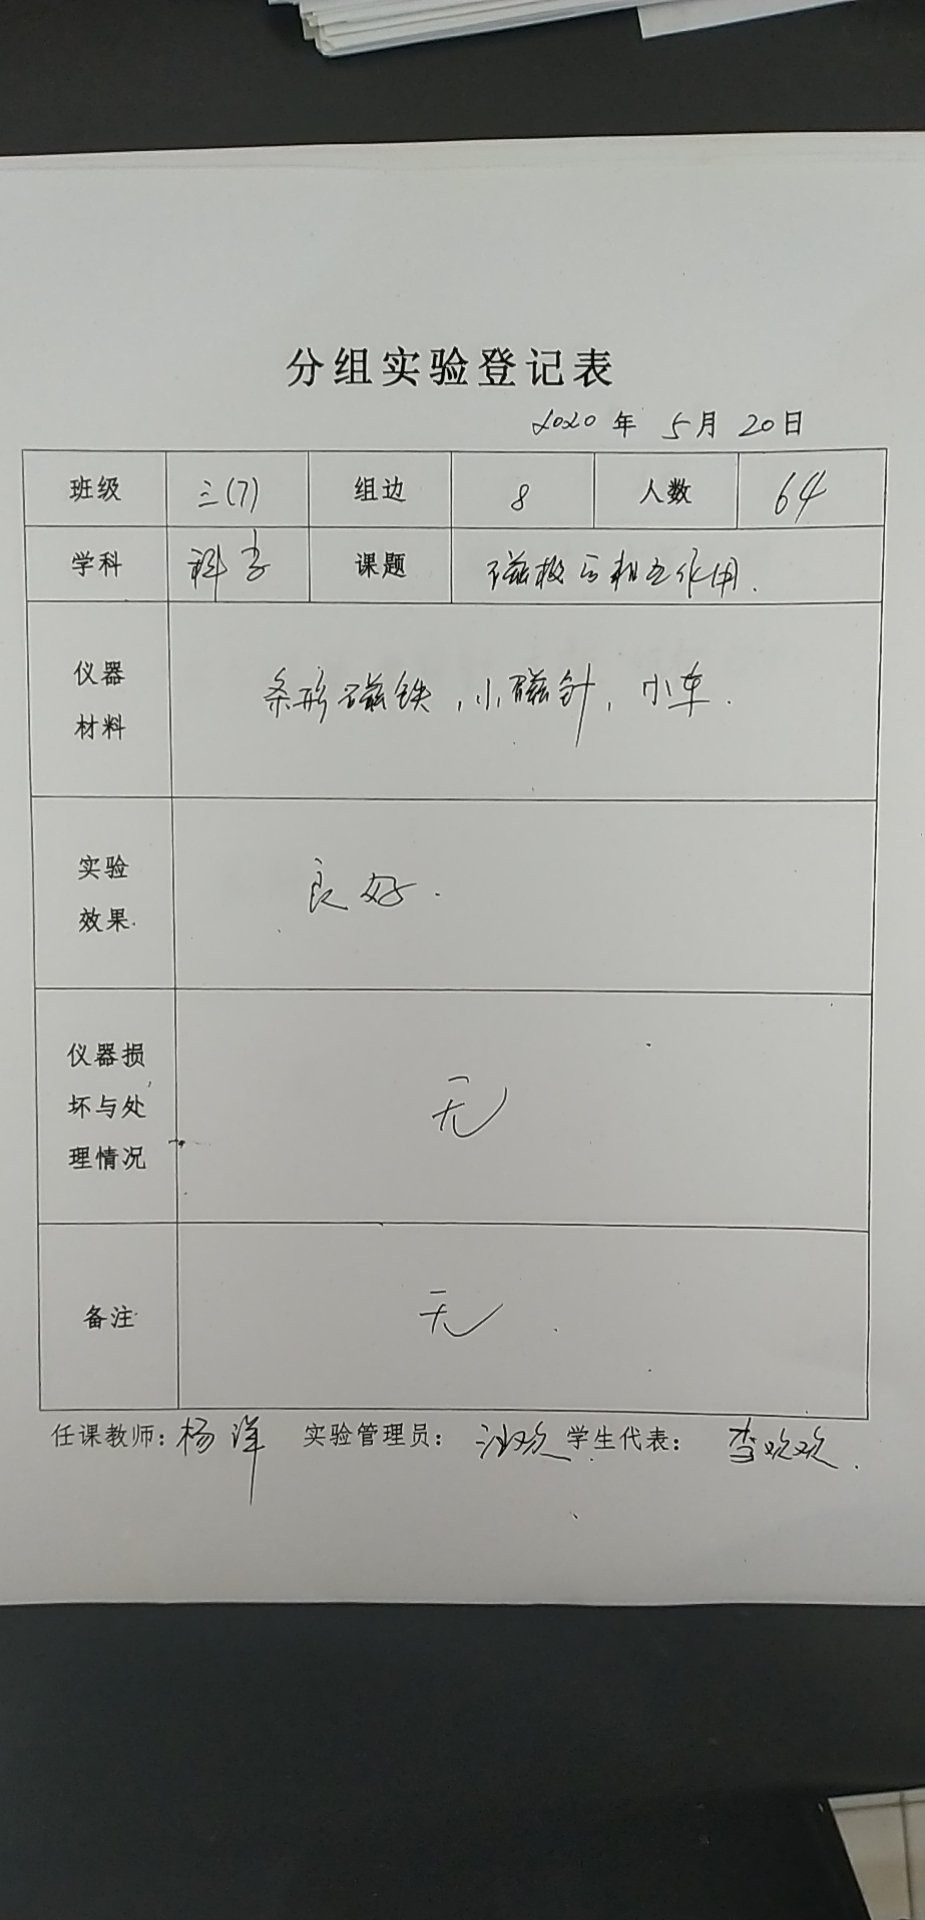 分组实验登记表
2020 年 5 月 20 日
班级 三(7) 组边 8 人数 64
学科 科学 课题 磁极间相互作用.
仪器
材料
条形磁铁,小磁针,小车.
实验
效果
良好.
仪器损
坏与处
理情况
无
备注
无
任课教师:杨洋 实验管理员: 欢 学生代表: 李欢欢.